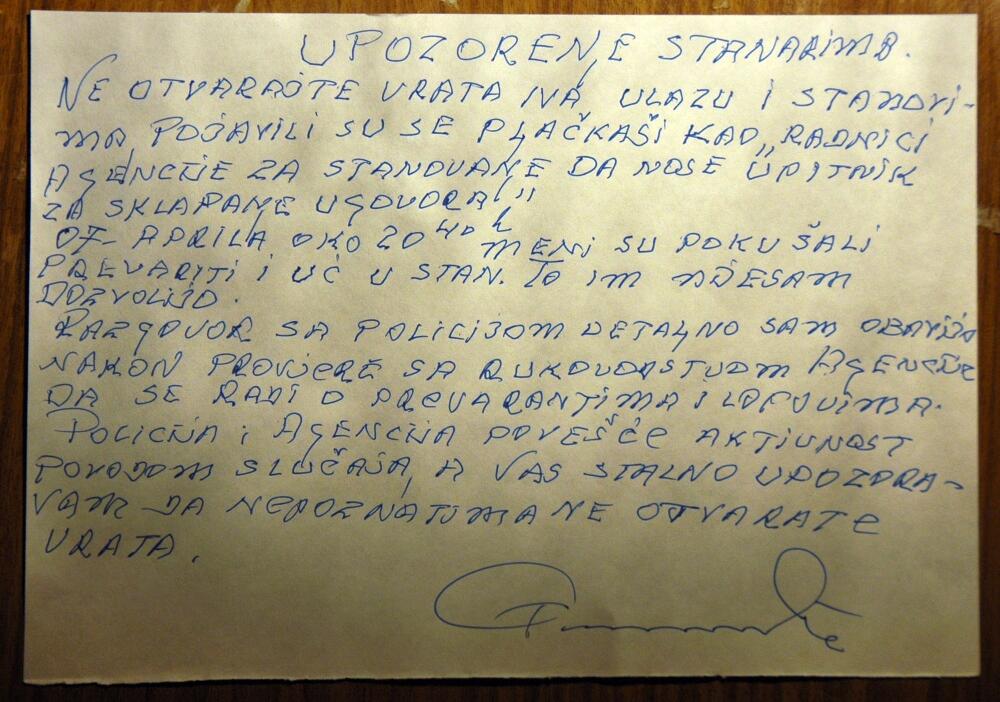 UPOZORENJE STANARIMA.
NE OTVARAJTE VRATA NA ULAZU I STANOVI-
MA, POJAVILI SU SE PLJAČKAŠI KAO „RADNICI
AGENCIJE ZA STANOVANJE DA NOSE UPITNIK
ZA SKLAPANJE UGOVORA!"
07- APRILA OKO 20 40 h MENI SU POKUŠALI
PREVARITI I UĆ U STAN. TO IM NIJESAM
DOZVOLIJO.
RAZGOVOR SA POLICIJOM DETALJNO SAM OBAVIJO
NAKON PROVJERE SA RUKOVODSTVOM AGENCIJE
DA SE RADI O PREVARANTIMA I LOPOVIMA.
POLICIJA I AGENCIJA POVEŠĆE AKTIVNOST
POVODOM SLUČAJA, A VAS STALNO UPOZORA-
VAM DA NEPOZNATIMA NE OTVARATE
VRATA.